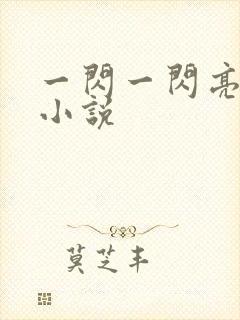 一閃一閃亮
小說
莫芝丰